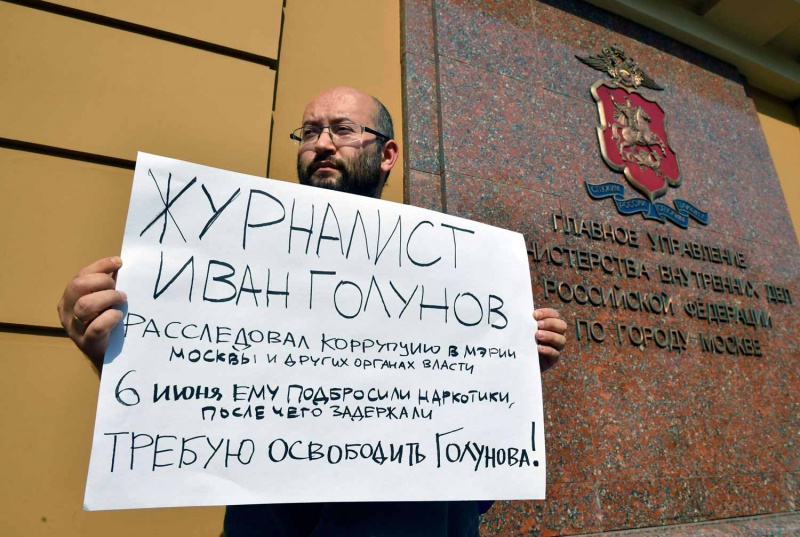 ЖУРНАЛИСТ
ИВАН ГОЛУНОВ
РАССЛЕДОВАЛ КОРРУПЦИЮ В МЭРИИ
МОСКВЫ И ДРУГИХ ОРГАНАХ ВЛАСТИ
6 ИЮНЯ ЕМУ ПОДБРОСИЛИ НАРКОТИКИ,
ПОСЛЕ ЧЕГО ЗАДЕРЖАЛИ
ТРЕБУЮ ОСВОБОДИТЬ ГОЛУНОВА!
ГЛАВНОЕ УПРАВЛЕНИЕ
ВНУТРЕННИХ ДЕЛ
РОССИЙСКОЙ ФЕДЕРАЦИИ
ПО ГОРОДУ МОСКВЕ